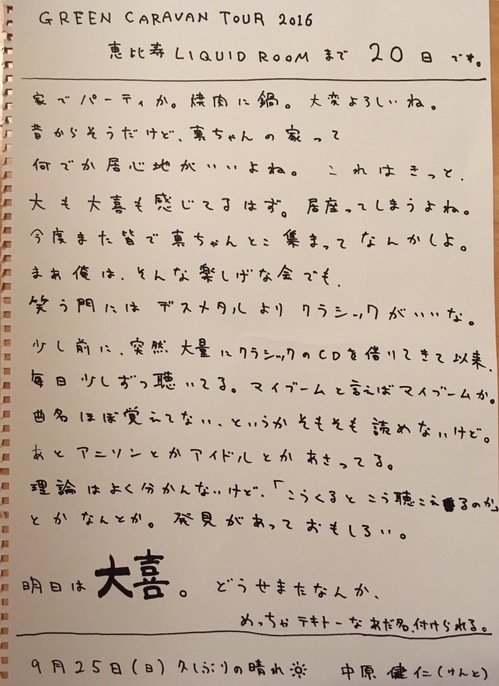 GREEN CARAVAN TOUR 2016
恵比寿 LIQUID ROOM まで 20日 です。
家でパーティか。焼肉に鍋。大変よろしいね。
昔からそうだけど、真ちゃんの家って
何でか居心地がいいよね。これはきっと、
大も大喜も感じてるはず。居座ってしまうよね。
今度また皆で真ちゃんとこ集まってなんかしよ。
まぁ俺は、そんな楽しげな会でも、
笑う門にはデスメタルよりクラシックがいいな。
少し前に、突然大量にクラシックのCDを借りてきて以来、
毎日少しずつ聴いてる。マイブームと言えばマイブームか。
曲名ほぼ覚えてない、というかそもそも読めないけど。
あとアニソンとかアイドルとかあさってる。
理論はよく分かんないけど、「こうくるとこう聴こえるのか」
とかなんとか。発見があっておもしろい。
明日は大喜。どうせまたなんか、
めっちゃテキトーなあだ名、付けられる。
9月25日(日)久しぶりの晴れ☀ 中原健仁(けんと)